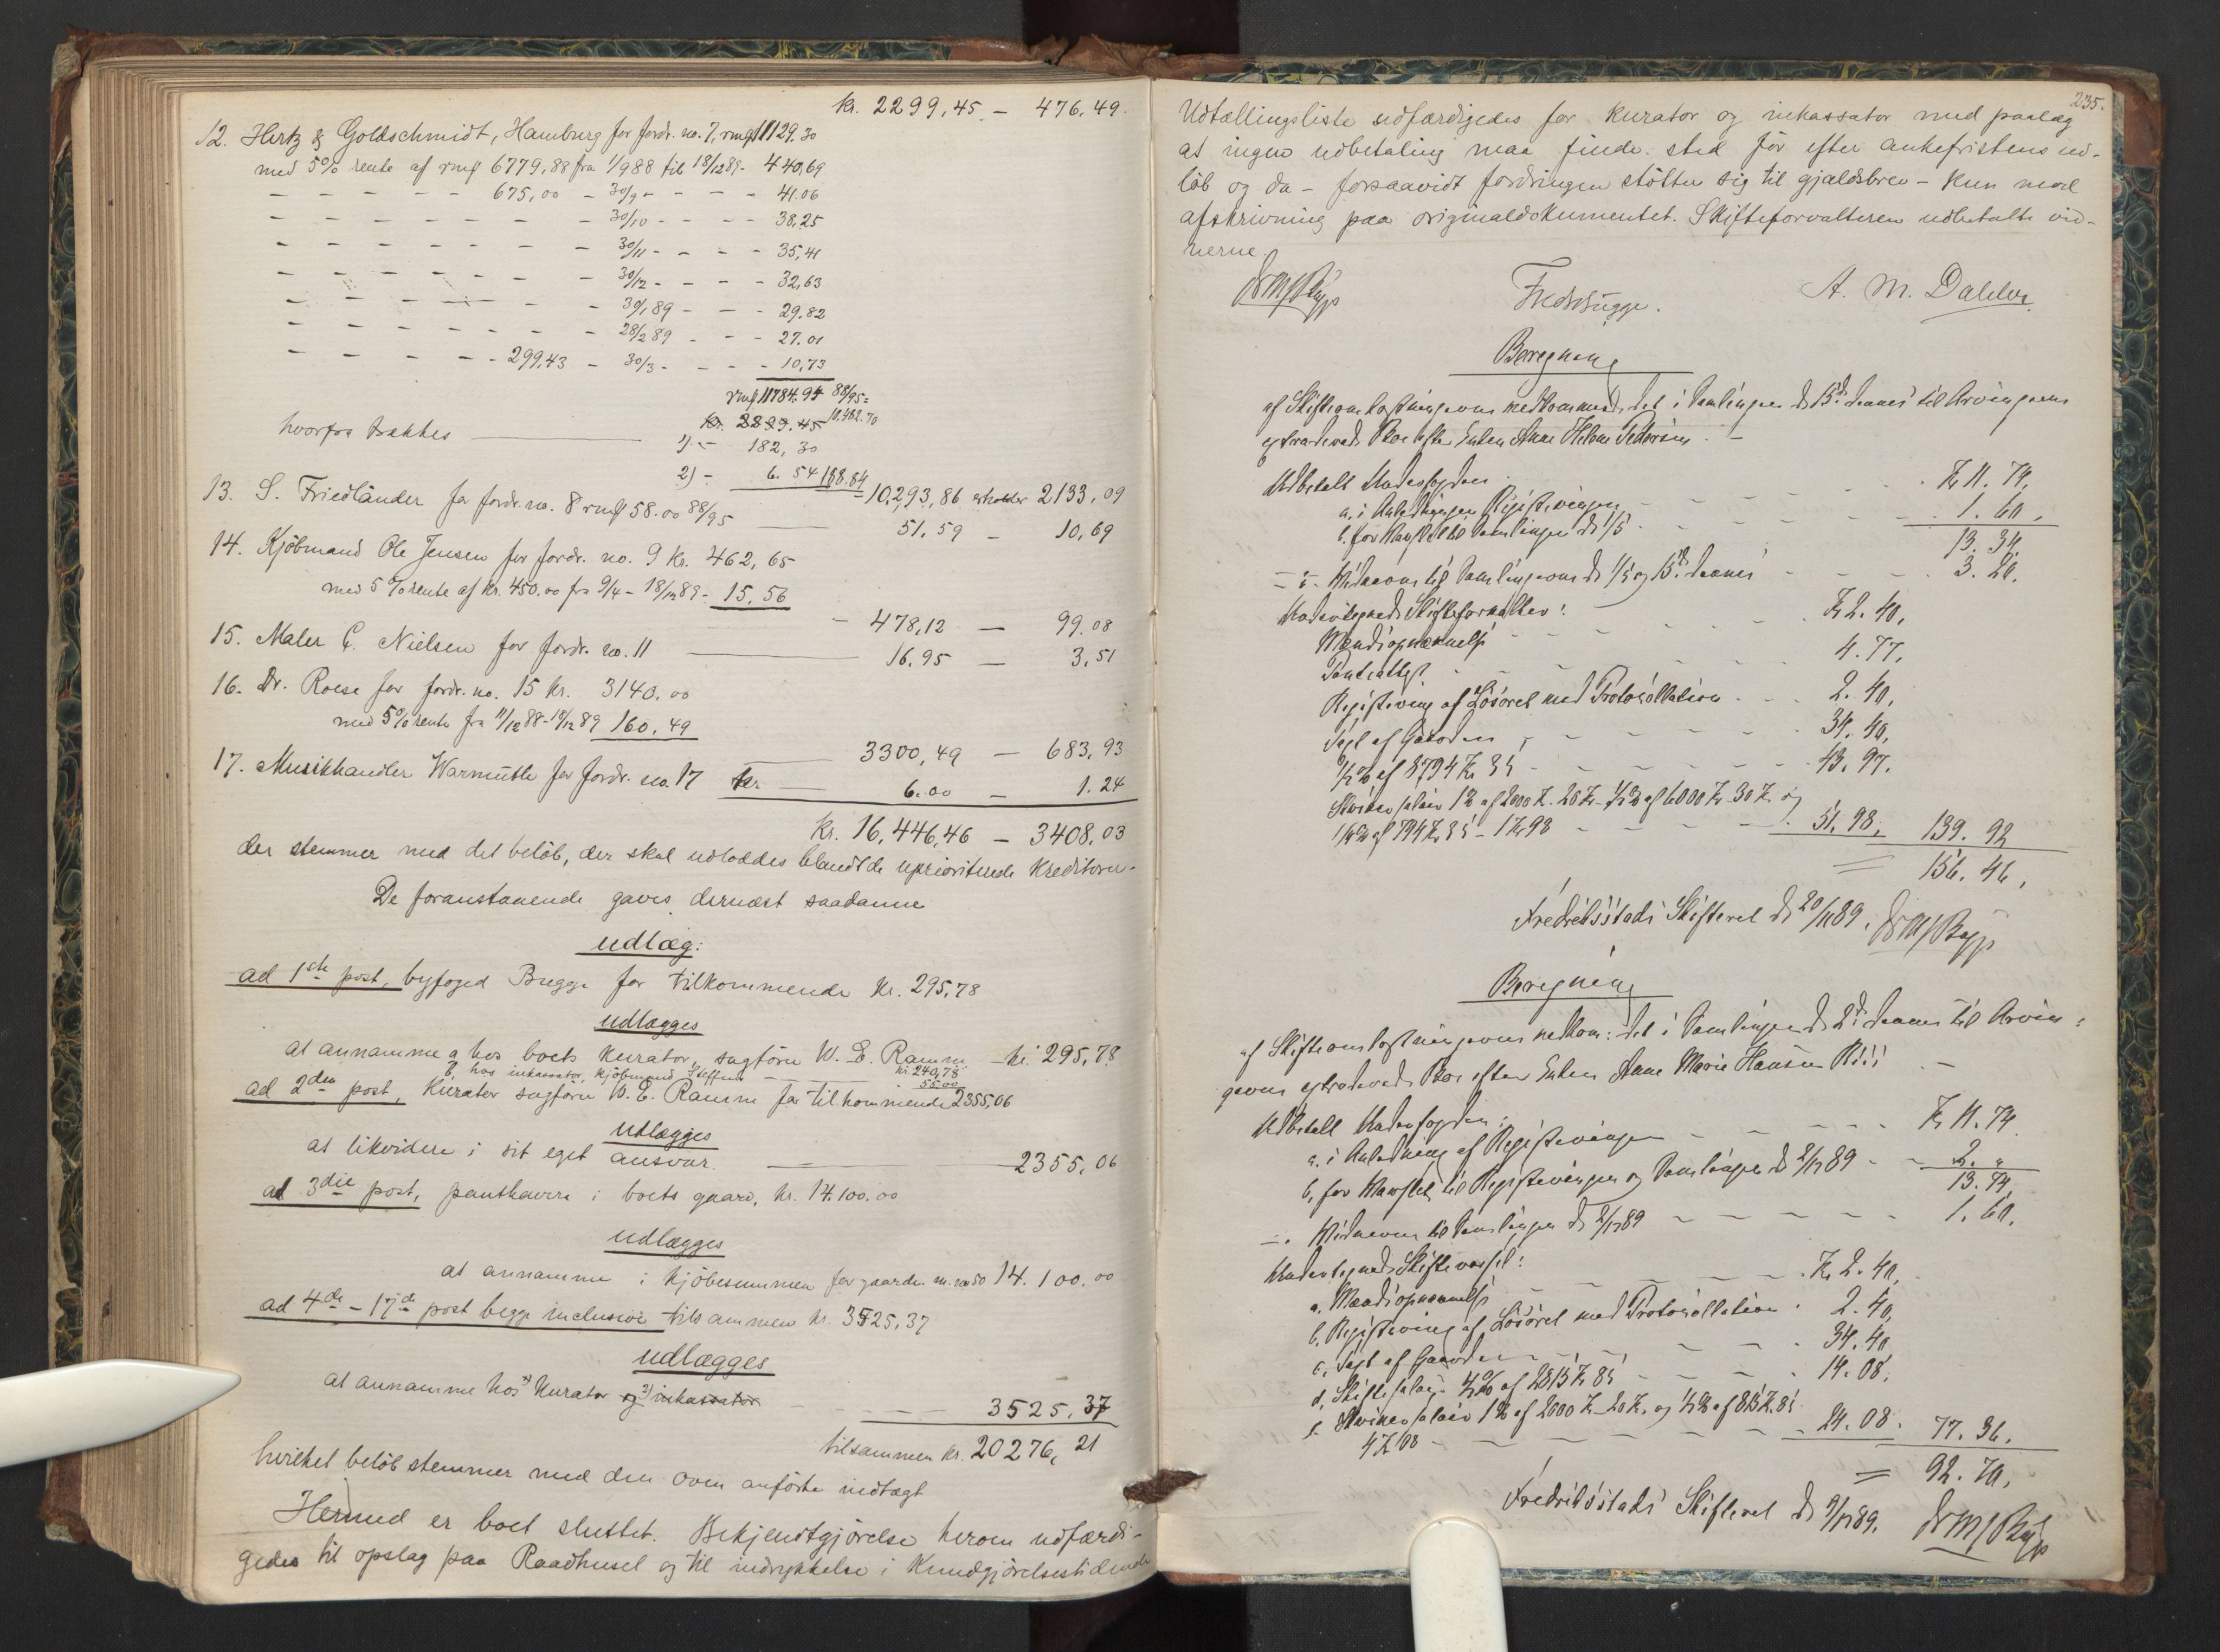 kr. 2299,45 - 476,49.
12. Hertz & Goldschmidt, Hamburg for fordr. no. 7, rmf 11129.30
med 5% rente af rmf 6779,88 fra 1/9 88 til 18/12 89 - 440,69
- - - - - 675,00 - 30/9 - - - - 41.06
- - - - - - - - 30/10 - - - - 38,25
- - - - - - - 30/11 - - - - 35,41
- - - - - - - 30/12 - - - - 32,63
- - - - - - - 30/1 89 - - - 29.82
- - - - - - - 28/2 89 - - - 27.01
- - - - - 299,43 - 30/3 - - - - 10,73
rmf 11784.94 88/95 =
kr. 2299.45 10,482.70
hvorfra trækkes 1) - 182,30
2) - 6. 54 188.84
- 10,293,86 erholder 2133,09
13. S. Friedländer for fordr. no. 8 rmf 58.00 88/95 51,59 - 10,69
14. Kjøbmand Ole Jensen for fordr. no. 9 kr. 462,65
med 5% rente af kr. 450.00 fra 9/4 - 18/12 89 - 15,56
- 478,12 - 99.08
15. Maler C. Nielsen for fordr. no. 11 16,95 - 3,51
16. Dr. Roese for fordr. no. 15 kr. 3140.00
med 5% rente fra 11/12 88 - 18/12 89 160,49
3300,49 - 683,93
17. Musikhandler Warmuth for fordr. no. 17 kr. 6.00 - 1.24
kr. 16,446,46 - 3408,03
der stemmer med det beløb, der skal udloddes blandt de uprioriterede kreditorer.
De foranstaaende gaves dernæst saadanne
udlæg:
ad 1ste post, byfoged Bugge for tilkommende kr. 295,78
udlægges
at annamme a hos boets kurator, sagfører W. E. Ramm - kr. 295,78
kr. 240,78
b, hos inkassator, kjøbmand Steffens 55.00
ad 2den post, kurator sagfører W. E. Ramm for tilkommende 2355,06
udlægges
at likvidere i sit eget ansvar. 2355,06
ad 3die post, panthavere i boets gaard, kr. 14.100.00
udlægges
at annamme i kjøbesummen for gaarden m. no 50 14.100.00
ad 4de - 17de post begge inclusive tilsammen kr. 3525,37
udlægges
at annamme hos 1) kurator og 2) inkassator 3525,37
tilsammen kr. 20276,21
hvilket beløb stemmer med den oven anførte indtægt
Hermed er boet sluttet. Bekjendtgjørelse herom udfærdi-
gedes til opslag paa Raadhuset og til indrykkelse i Kundgjørelsestidende
235.
Udtællingsliste udfærdigedes for kurator og inkassator med paalæg
at ingen udbetaling maa finde sted før efter ankefristens ud-
løb og da - forsaavidt fordringen støtter sig til gjældsbrev - kun mod
afskrivning paa originaldokumentet. Skifteforvalteren udbetalte vid-
nerne
Fredr. Bugge. A. M. Dahler
Beregning
af Skifteomkostningerne vedkommende det i Samlingen d. 15de dennes til Arvingerne
extraderede Bo efter Enken Anne Helene Pedersen. -
Udbetalt Underfogden
a. i Anledning Registreringen - - - Kr. 11. 74,
b. for Varsel til Samlingen d. 1/5 - - - 1. 60,
13. 34,
- " - Vidnerne til Samlingerne d. 1/5 og 15de dennes - - - 3. 20.
Undertegnede Skifteforvalter:
Mændsopnævnelse - - - Kr. 2. 40,
Panteattest - - - 4. 77,
Registrering af Løsøret med Protokollation - - 2. 40,
Taxt af Gaarden - - - 34. 40,
1/2 % af 8794 Kr. 85 - - - 43. 97.
Skriversalair 1% af 2000 Kr. 20 Kr. 1/2 % af 6000 Kr. 30 Kr. og
1/4 % af 794 Kr. 85 - 1 Kr. 98 - - - 51. 98. 139. 92
= 156. 46,
Fredriksstads Skifteret d. 20/11 89.
Beregning
af Skifteomkostningerne vedkom: det i Samlingen d. 2den dennes til Arvin-
gerne extraderede Bo efter Enken Anne Marie Hansen
Udbetalt Underfogden:
a. i Anledning af Registreringen - - - Kr. 11. 74
b, for Varslet til Registreringen og Samlingen d. 2/12 89 - - 2. "
13. 74,
- . Vidnerne til Samlingen d. 2/12 89 - - - 1. 60.
Undertegnede
a. Mændsopnævnelse - - - Kr. 2. 40,
b. Registrering af Løsøret med Protokollation . 2. 40,
c. Taxt af Gaarden - - - 34. 40
d. Skiftesalair 1/2 % af 2815 Kr. 85 - - - 14. 08.
e. Skriversalair 1% af 2000 Kr. 20 Kr. og 1/2 % af 815 Kr. 85
4 Kr. 08 - - - 24. 08. 77. 36.
= 92. 70,
Fredriksstads Skifteret d. 9/12 89.